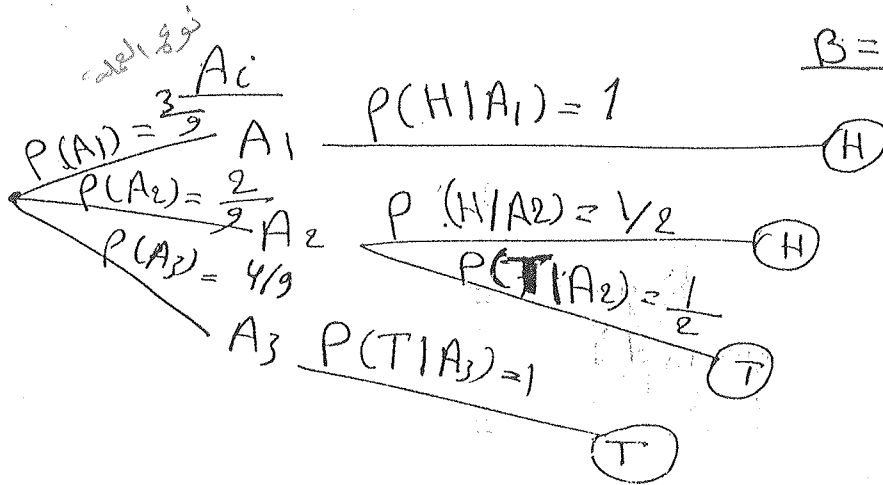 نوع العملة
Ai
B =
P(A1) = 3/9
A1
P(H|A1) = 1
H
P(A2) = 2/9
A2
P(H|A2) = 1/2
H
P(T|A2) = 1/2
T
P(A3) = 4/9
A3
P(T|A3) = 1
T